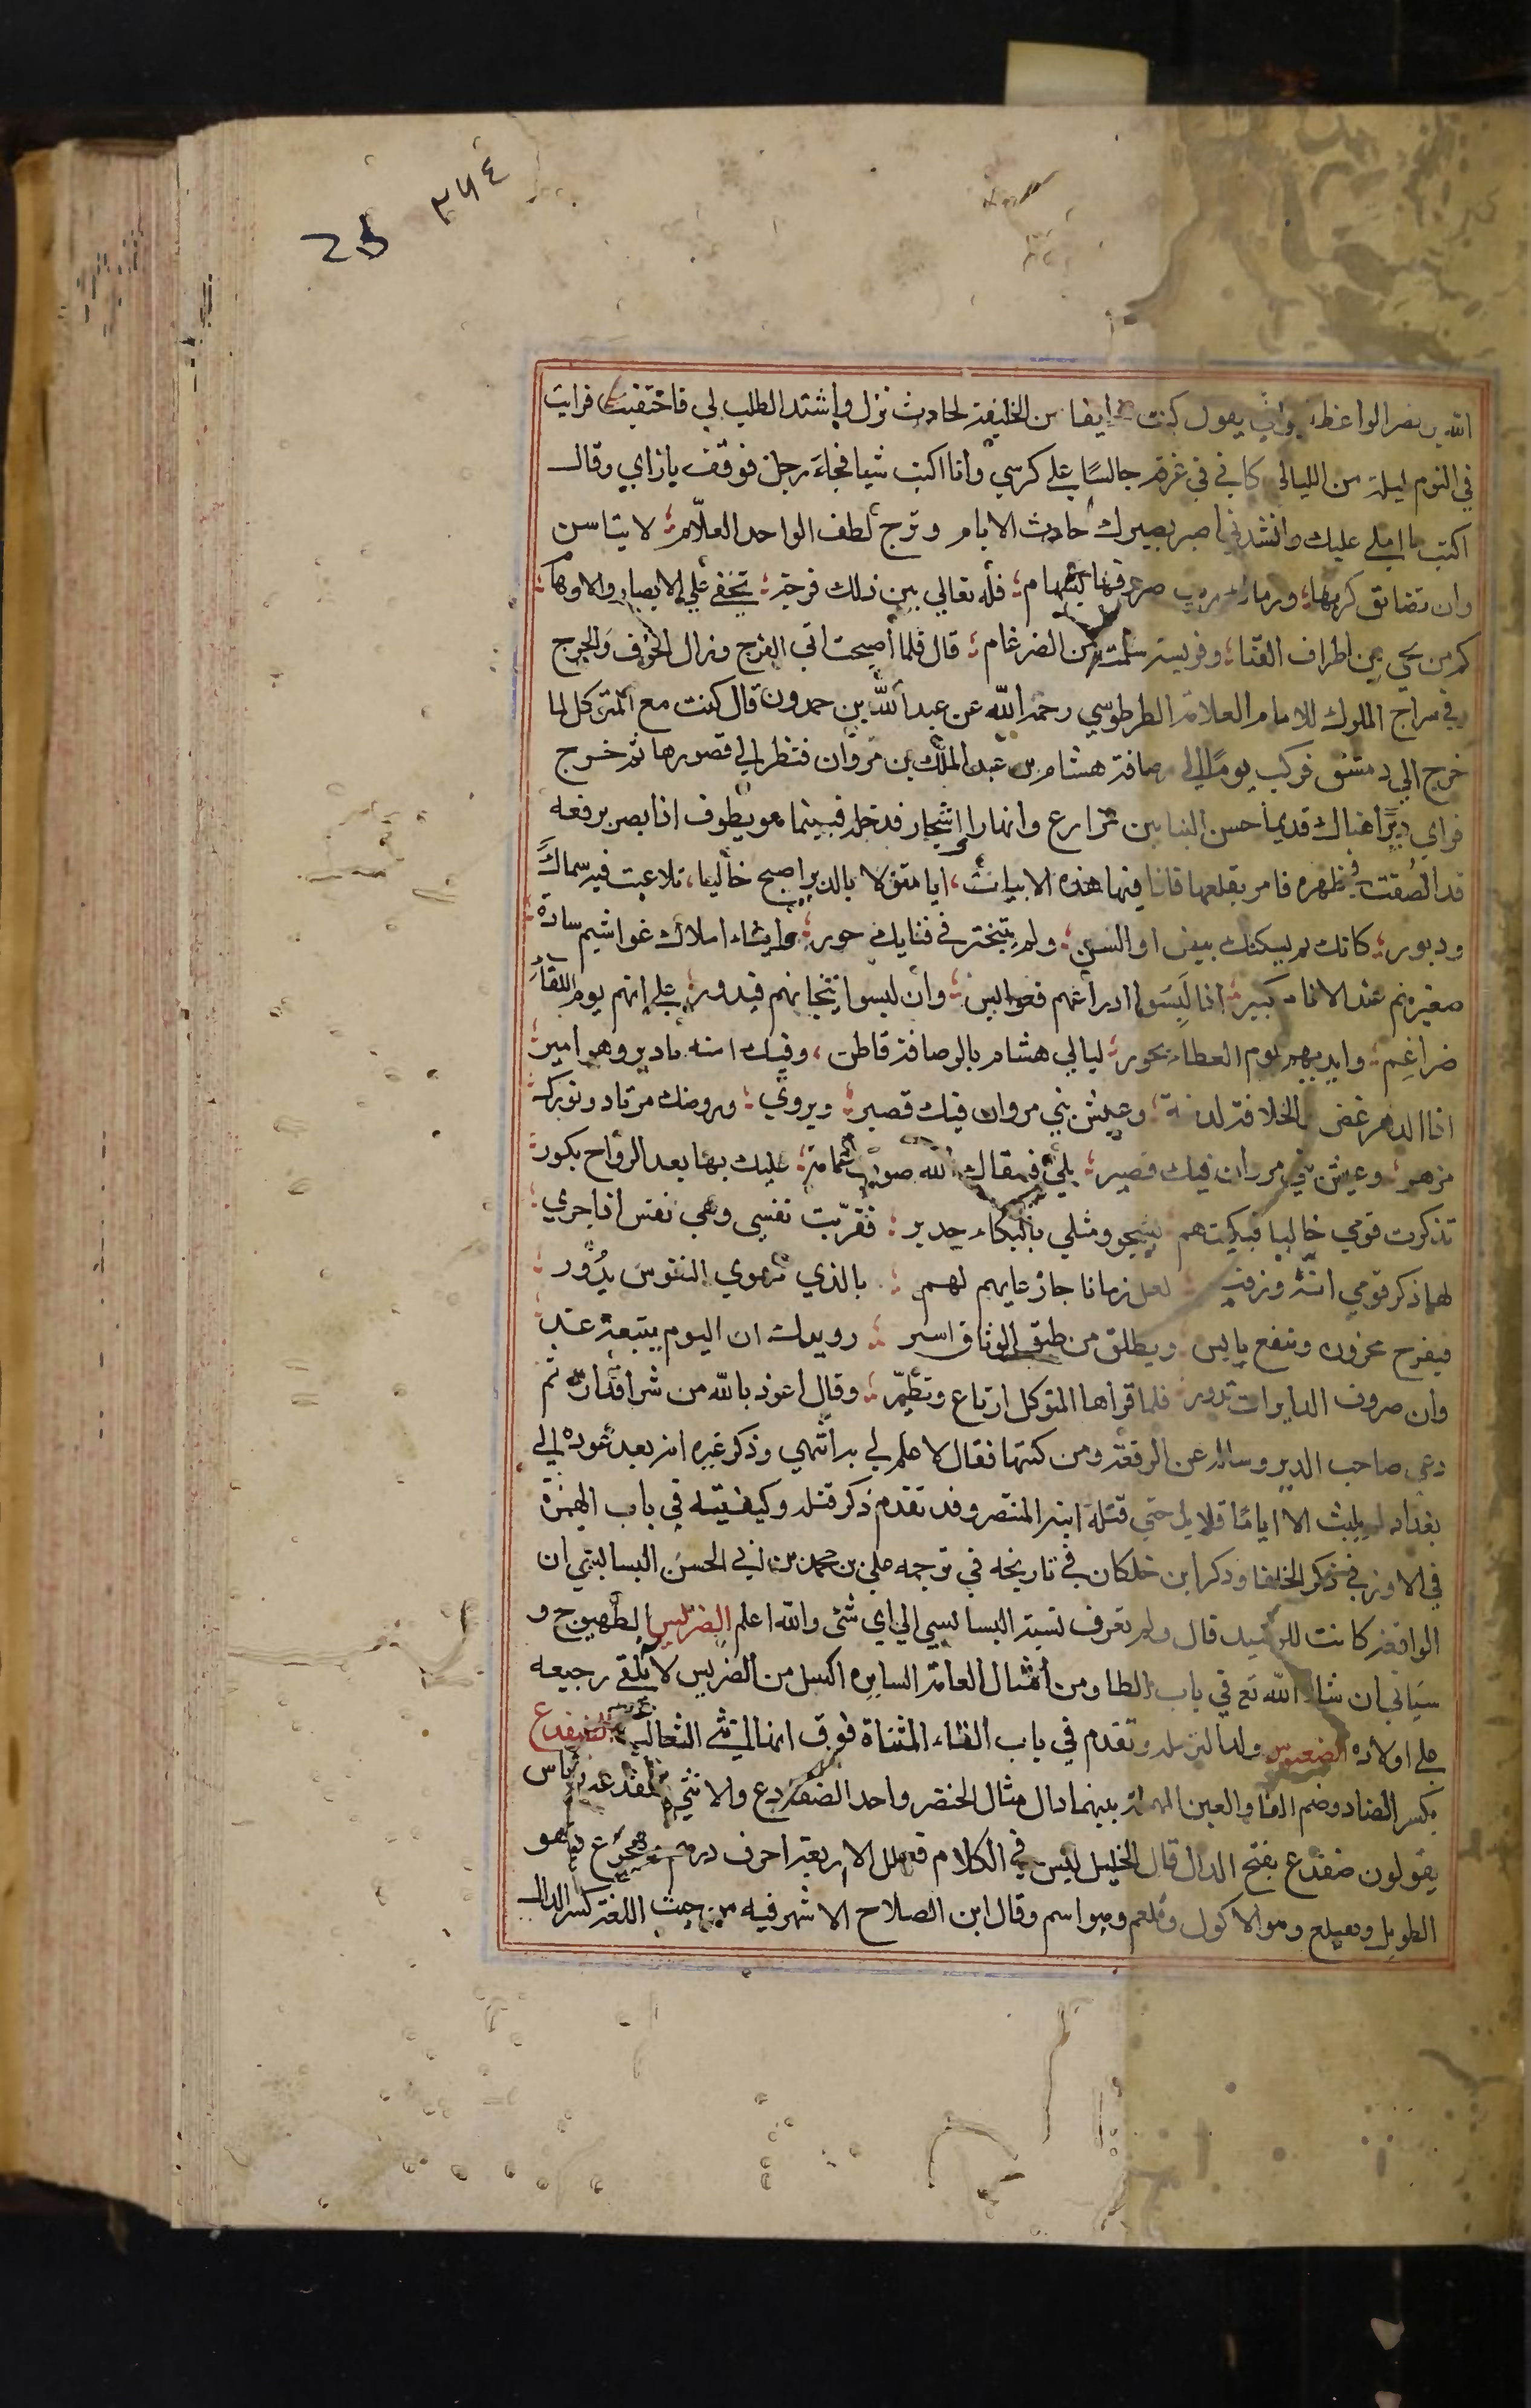 ٣٧٤
الله بن نصر الواعظ يقول كنت خايفا من الخليفة لحادث نزل واشتد الطلب لي فاختفيت فرايت
في النوم ليلة من الليالي كاني في غرفة جالسًا علي كرسي وانا اكتب شيا فجاء رجل فوقف بازاي وقال
اكتب ما املي عليك وانشدني اصبر بصبرك حادث الايام وترج لطف الواحد العلّام لا يتاسن
وان تضايق كربها ورماك صرفها بسهام فله تعالي بين ذلك فرجة تخفي علي الابصار والاوهام
كم من نجي بين اطراف القنا وفريسة سلمت من الضرغام قال فلما اصبحت اتي الفرج وزال الخوف والحرج
وفي سراج الملوك للامام العلامة الطرطوسي رحمة الله عن عبد الله بن حمدون قال كنت مع المتوكل لما
خرج الي دمشق فركب يومًا الي رصافة هشام بن عبد الملك بن مروان فنظر الي قصورها ثم خرج
فراي ديرًا هناك قديما حسن البنا بين مزارع وانهار واشجار فدخله فبينما هو يطوف اذا بصر برقعة
قد الصقت في ظهره فامر بقلعها فاذا فيها هذه الابيات ايا منزلا بالدير اصبح خاليا تلاعبت فيه شمال
ودبور كانك لم يسكنك بيض اوانس ولم يتبختر في فنايك حور وابناء املاك غواشم سادة
صغيرهم عند الانام كبير اذا لبسوا ادراعهم فعوابس وان لبسوا تيجانهم فبدور علي انهم يوم اللقاء
ضراغم وايديهم يوم العطاء بحور ليالي هشام بالرصافة قاطن وفيك ابنه يا دير وهو امير
اذا الدهر غض والخلافة لدنة وعيش بني مروان فيك قصير ويروي وروضك مرتاد ونورك
مزهر وعيش بني مروان فيك قصير بلي فسقاك الله صوب غمامة عليك بها بعد الرواح بكور
تذكرت قومي خاليا فبكيتهم بشجو ومثلي بالبكاء جدير فقربت نفسي وهي نفس اذا جري
لها ذكر قومي انة وزفير لعل زمانا جار عليهم لهم بالذي تهوي النفوس يدور
فيفرح محزون وينعم بايس ويطلق من طيق الوثاق اسير رويدك ان اليوم يتبعه غد
وان صروف الدايرات تدور فلما قراها المتوكل ارتاع وتطير وقال اعوذ بالله من شر اقداره ثم
دعي صاحب الدير وساله عن الرقعة ومن كتبها فقال لا علم لي بها انتهي وذكر غيره انه بعد عوده الي
بغداد لم يلبث الا ايامًا قلايل حتي قتله ابنه المنتصر وقد تقدم ذكر قتله وكيفيته في باب الهمزة
في الاوز في ذكر الخلفا وذكر ابن خلكان في تاريخه في ترجمه علي بن محمد بن ابي الحسن البسابتي ان
الواقعة كانت للرشيد قال ولم تعرف نسبته البسابسي الي اي شئ والله اعلم الضريس الطهيوج و
سياتي ان شاء الله تع في باب الطا ومن امثال العامة السايرة اكسل من الضريس لانه يلقي رجيعه
علي اولاده الضغبوس ولد الثرملة وتقدم في باب الثاء المثناة فوق انها انثي الثعالب الضفدع
بكسر الضاد وضم الفا والعين المهملة بينهما دال مثال الخنصر واحد الضفادع والانثي ضفدعة وناس
يقولون ضفدع بفتح الدال قال الخليل ليس في الكلام فعلل الا اربعة احرف درهم وهجرع وهو
الطويل وهبلع وهو الاكول وقلعم وهو اسم وقال ابن الصلاح الاشهر فيه من حيث اللغة كسر الدال